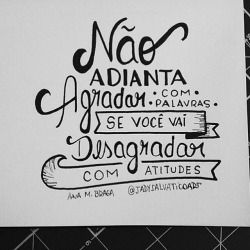 Não
ADIANTA
Agradar COM
PALAVRAS
SE VOCÊ VAI
Desagradar
COM ATITUDES
ANA M. BRAGA